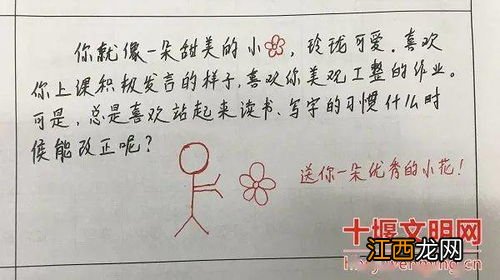 你就像一朵甜美的小，玲珑可爱．喜欢
你上课积极发言的样子，喜欢你美观工整的作业。
可是，总是喜欢站起来读书、写字的习惯什么时
候能改正呢？
送你一朵优秀的小花！
十堰文明网
江西龙网